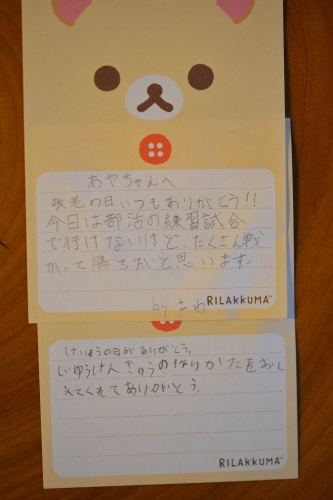 あやちゃんへ
敬老の日いつもありがとう!!
今日は部活の練習試合
で行けないけど、たくさん戦
かって勝ちたいと思います。
by さわ
RILAKKUMA™
けいろうの日がありがとう。
じゆうけんきゅうのやりかたをおし
えてくれてありがとう。
RILAKKUMA™